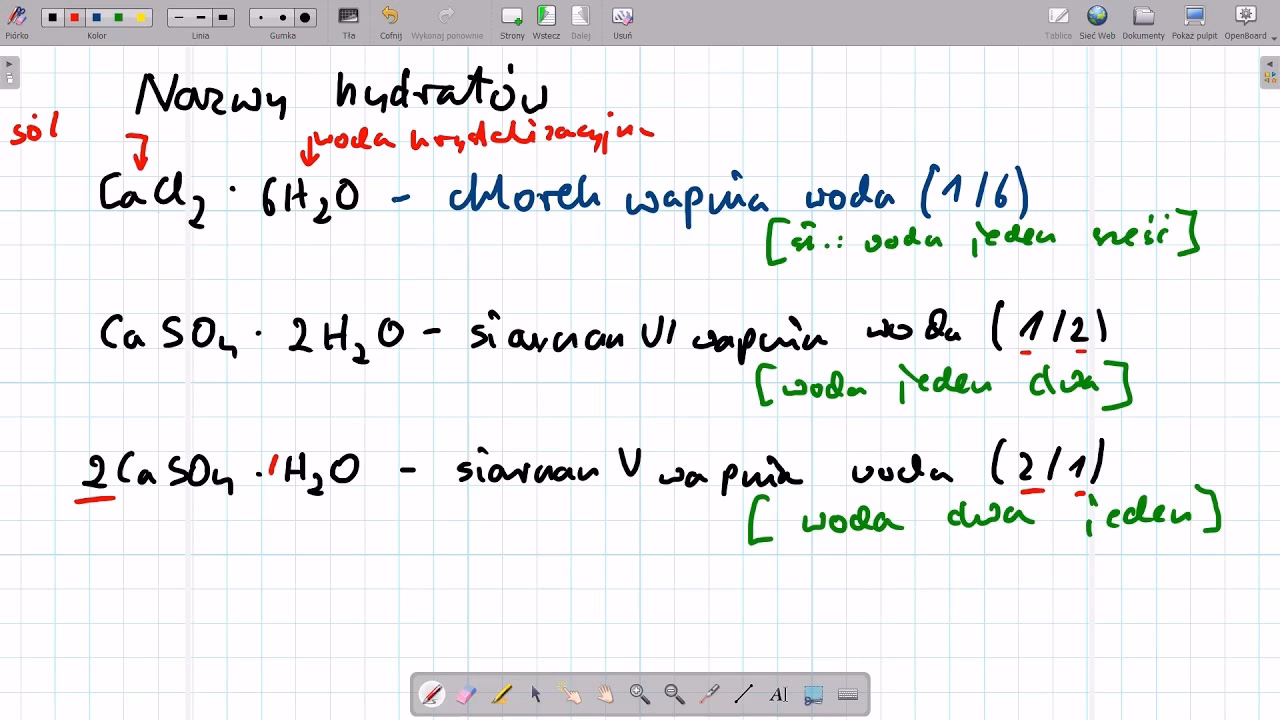 Piórko Kolor Linia Gumka Tła Cofnij Wykonaj ponownie Strony Wstecz Dalej Usuń Tablica Sieć Web Dokumenty Pokaż pulpit OpenBoard
Nazwy hydratów
sól woda krystalizacyjna
CaCl₂ · 6H₂O - chlorek wapnia woda (1/6)
[czyt.: woda jeden sześć]
CaSO₄ · 2H₂O - siarczan VI wapnia woda (1/2)
[woda jeden dwa]
2CaSO₄ · 1H₂O - siarczan V wapnia woda (2/1)
[woda dwa jeden]
AI